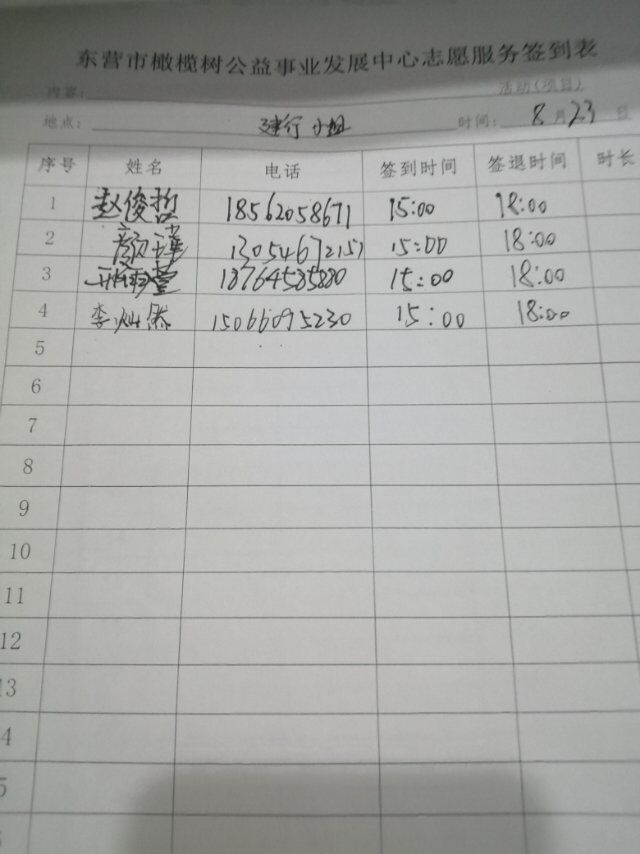 东营市橄榄树公益事业发展中心志愿服务签到表
内容: 活动(项目)
地点: 建行 小姐 时间: 8月23日
序号 姓名 电话 签到时间 签退时间 时长
1 赵俊哲 18562058671 15:00 18:00
2 颜 1305467215 15:00 18:00
3 18764585880 15:00 18:00
4 李灿然 15066095230 15:00 18:00
5
6
7
8
9
10
11
12
13
4
5